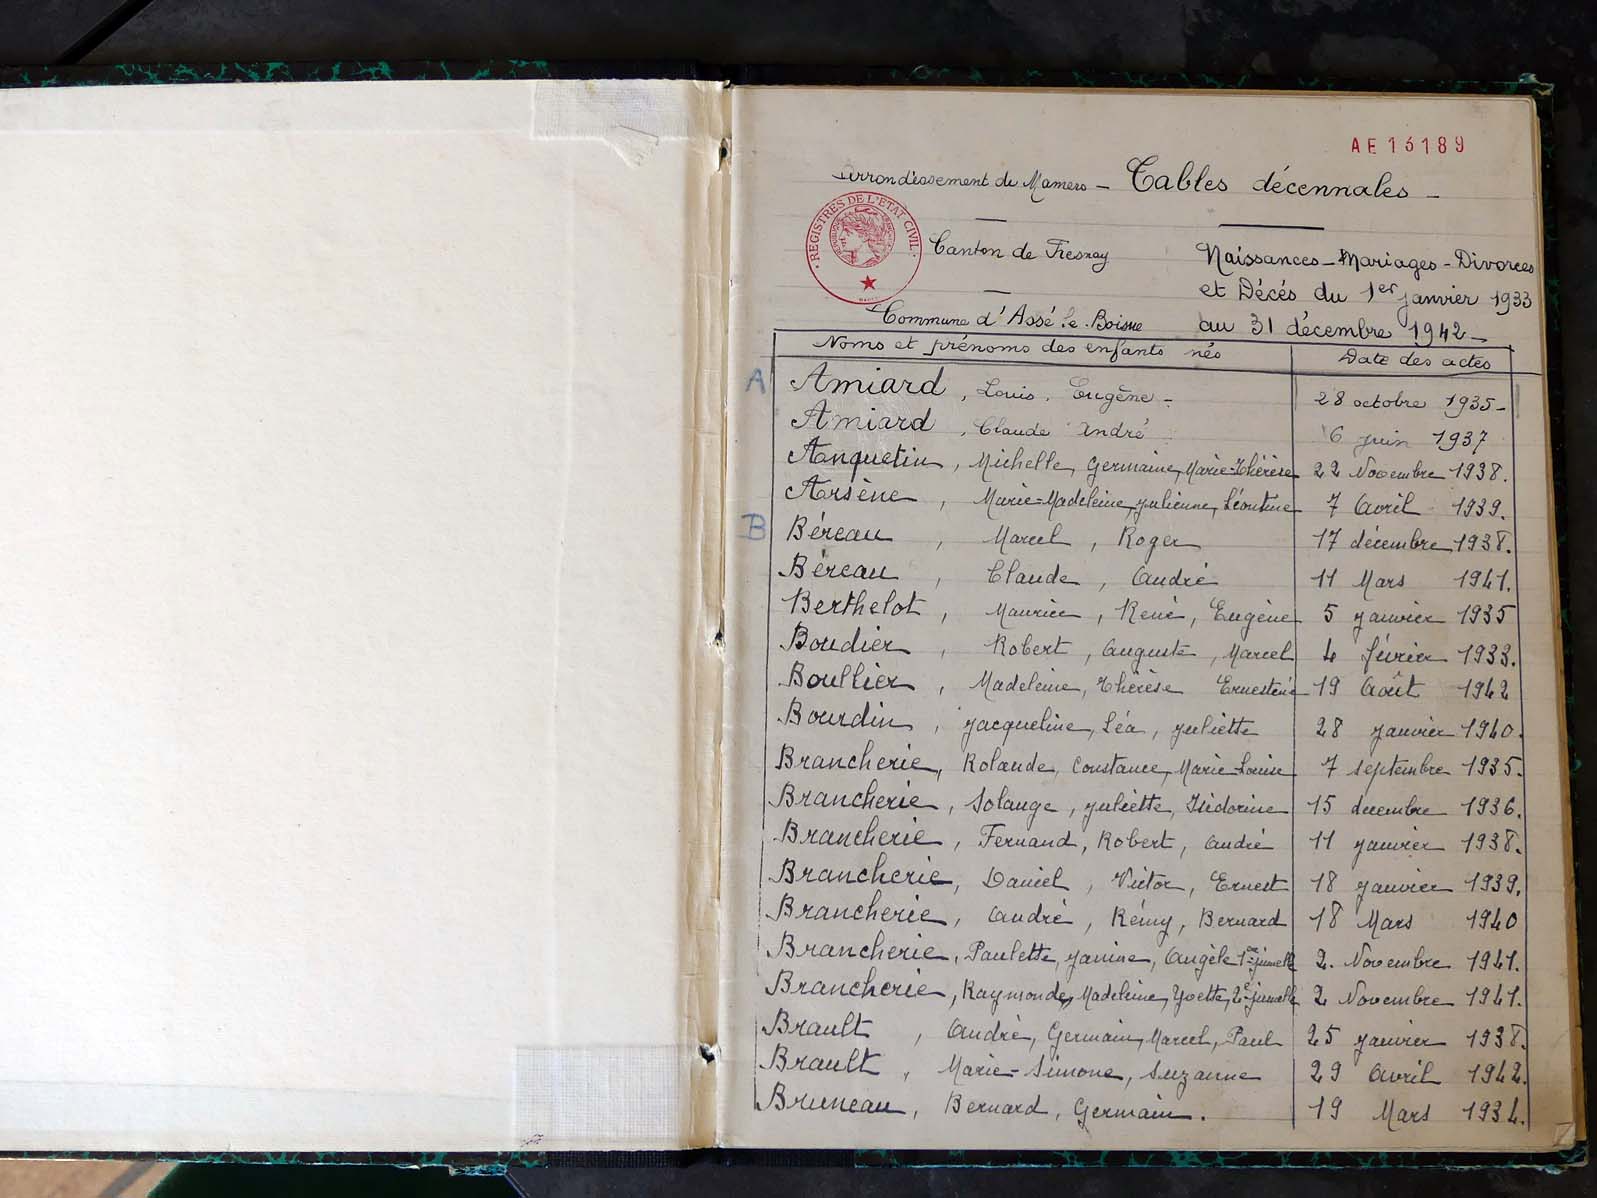 AE 13189
Arrondissement de Mamers - Tables décennales -
REGISTRES DE L'ETAT CIVIL
Canton de Fresnay
Naissances - Mariages - Divorces
et Décés du 1er janvier 1933
Commune d'Assé-le-Boisne
au 31 décembre 1942 -
Noms et prénoms des enfants nés Date des actes
A
Amiard, Louis, Eugène - 28 octobre 1935 -
Amiard, Claude André 6 juin 1937
Anquetin, Michelle, Germaine, Marie-Thérèse 22 Novembre 1938.
Arsène, Marie-Madeleine, Julienne, Léontine 7 Avril 1939.
B
Béreau, Marcel, Roger 17 décembre 1938.
Béreau, Claude, André 11 Mars 1941.
Berthelot, Maurice, René, Eugène 5 janvier 1935
Boudier, Robert, Auguste, Marcel 4 février 1933.
Boullier, Madeleine, Thérèse Ernestine 19 Août 1942
Bourdin, Jacqueline, Léa, Juliette 28 janvier 1940.
Brancherie, Rolande, Constance, Marie-Louise 7 septembre 1935.
Brancherie, Solange, Juliette, Isidorine 15 decembre 1936.
Brancherie, Fernand, Robert, André 11 janvier 1938.
Brancherie, Daniel, Victor, Ernest 18 janvier 1939.
Brancherie, André, Rémy, Bernard 18 Mars 1940
Brancherie, Paulette, Janine, Angèle 1ère jumelle 2. Novembre 1941.
Brancherie, Raymonde, Madeleine, Yvette, 2e jumelle 2 Novembre 1941.
Brault, André, Germain, Marcel, Paul 25 janvier 1938.
Brault, Marie-Simone, Suzanne 29 Avril 1942.
Bruneau, Bernard, Germain. 19 Mars 1934.